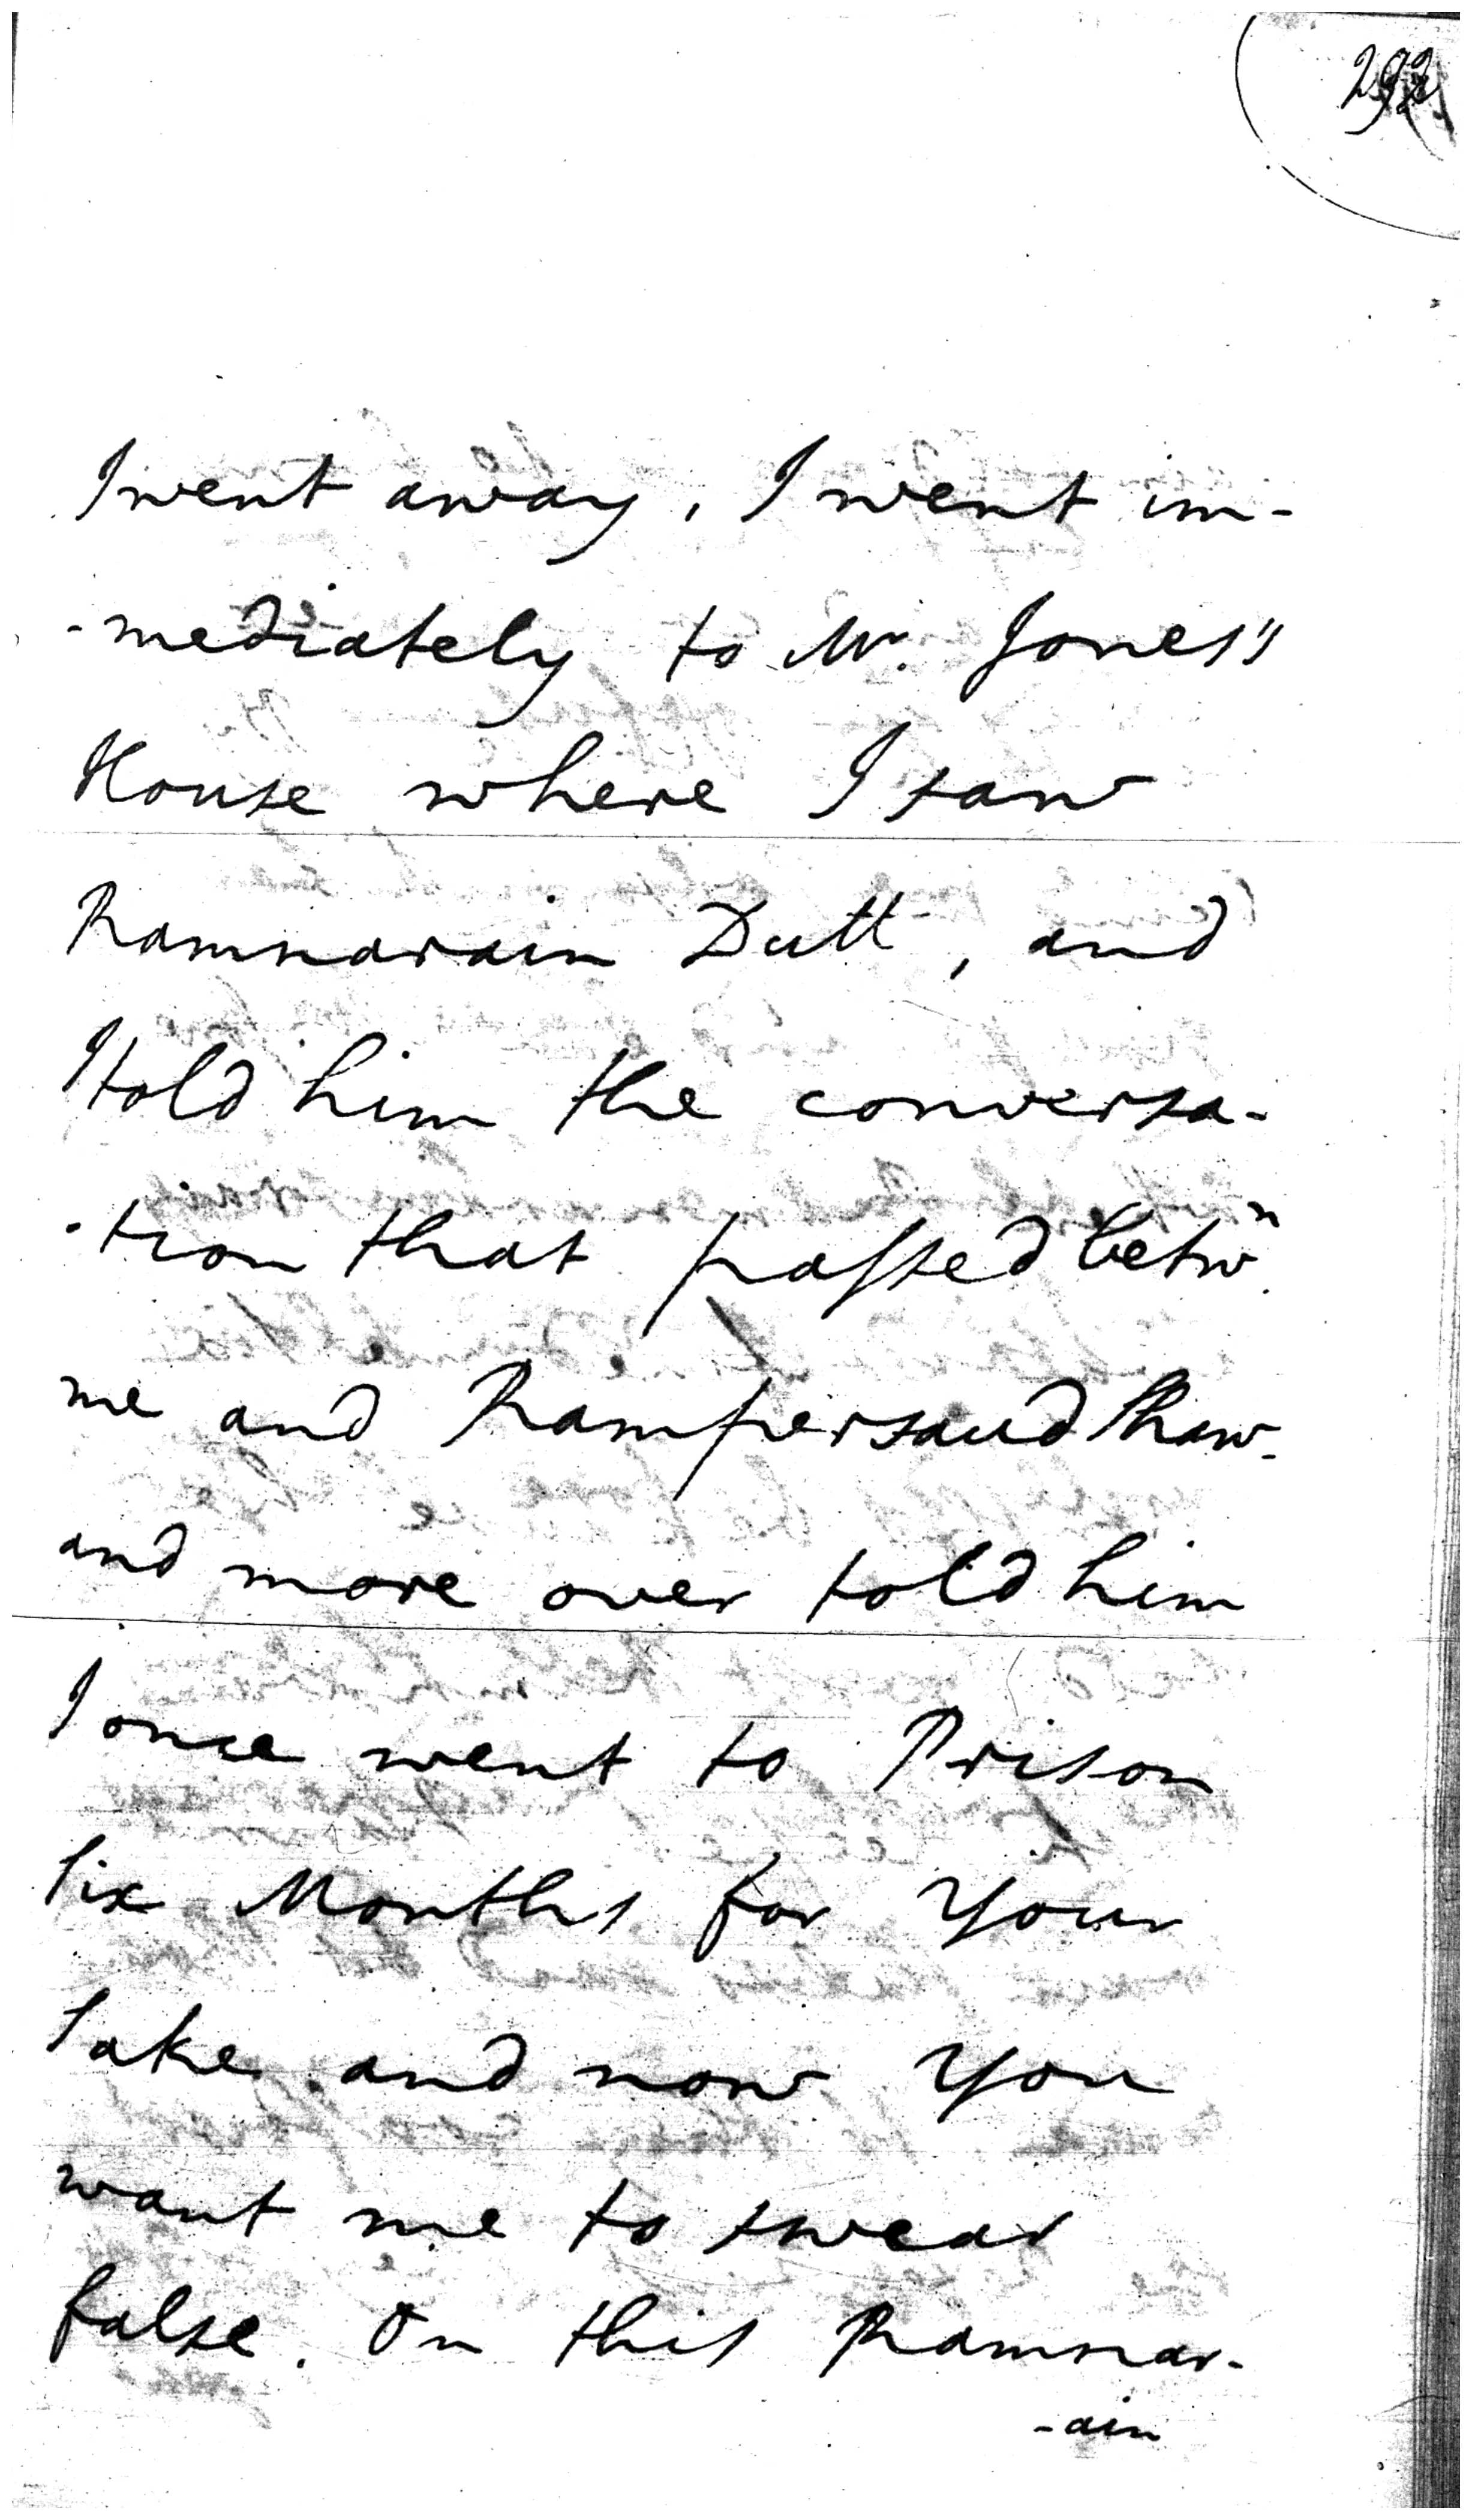 I went away, I went im-
-mediately to Mr. Jones's
House where I saw
Ramnarain Dutt, and
I told him the conversa-
-tion that passed betwn.
me and Rampersaud Raw-
and more over told him
I once went to Prison
Six Months for Your
Sake and now You
want me to swear
false. On this Ramnar-
-ain